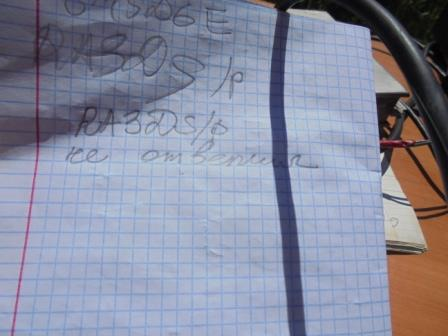 RA3DS/p
RA3DS/p
не ответил